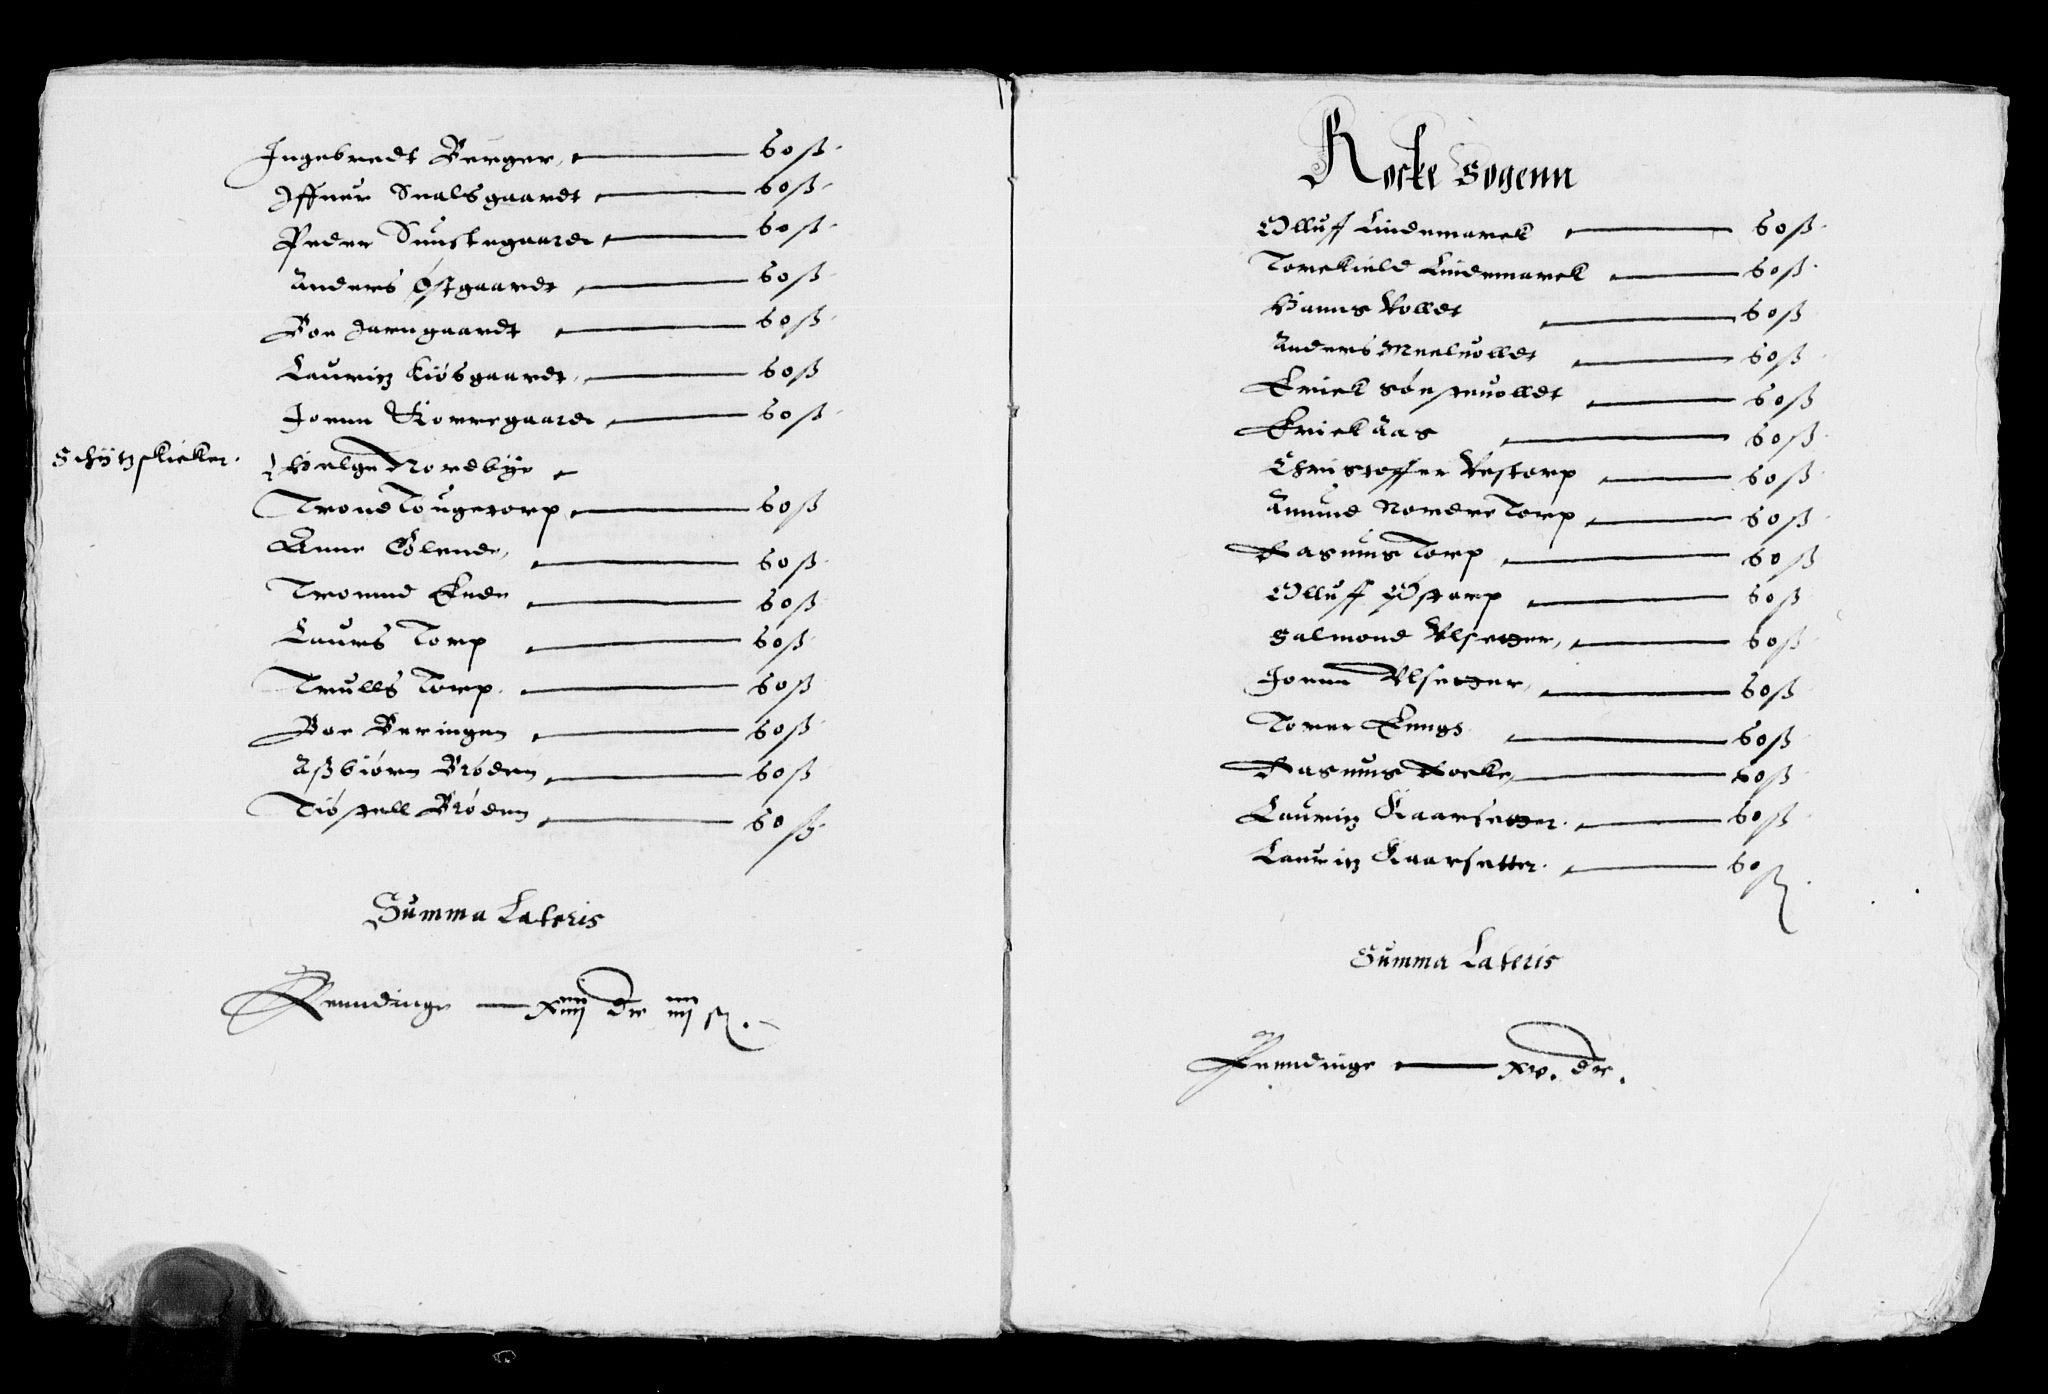 Ingebredt Berger, 60 ß
Iffuer Snalsgaardt 60 ß
Peder Sunstegaardt 60 ß
Anders Østgaardt 60 ß
Boe Jarngaardt 60 ß
Lauritz Kiøsgaardt 60 ß
Joenn Korregaardt 60 ß
Schÿtzskieker. Helge Nordbÿe
Trond Tougetorp 60 ß
Anne Glende, 60 ß
Tromund Ende 60 ß
Laurs Torp 60 ß
Trulls Torp 60 ß
Boe Beringen 60 ß
Aßbiørn Brøden 60 ß
Tiøstell Brøden 60 ß
Summa Lateris
Penndinge xiiij dr iiij ß.
Rocke Sogenn
Olluff Lindemarck 60 ß
Torckield Lindemarck 60 ß
Hanns Volldt 60 ß
Anders Meeluolldt 60 ß
Erick Sønsteuolldt 60 ß
Erick Aas 60 ß
Christoffer Vestorp 60 ß
Amund Nordre Torp 60 ß
Rasmus Torp 60 ß
Olluff Østorp 60 ß
Salmond Vlsetter, 60 ß
Joenn Vlsetter, 60 ß
Torer Eengs 60 ß
Rasmus Rocke, 60 ß
Lauritz Kaarsetter. 60 ß
Lauritz Kaarsetter. 60 ß
Summa Lateris
Penndinge xv. dr.